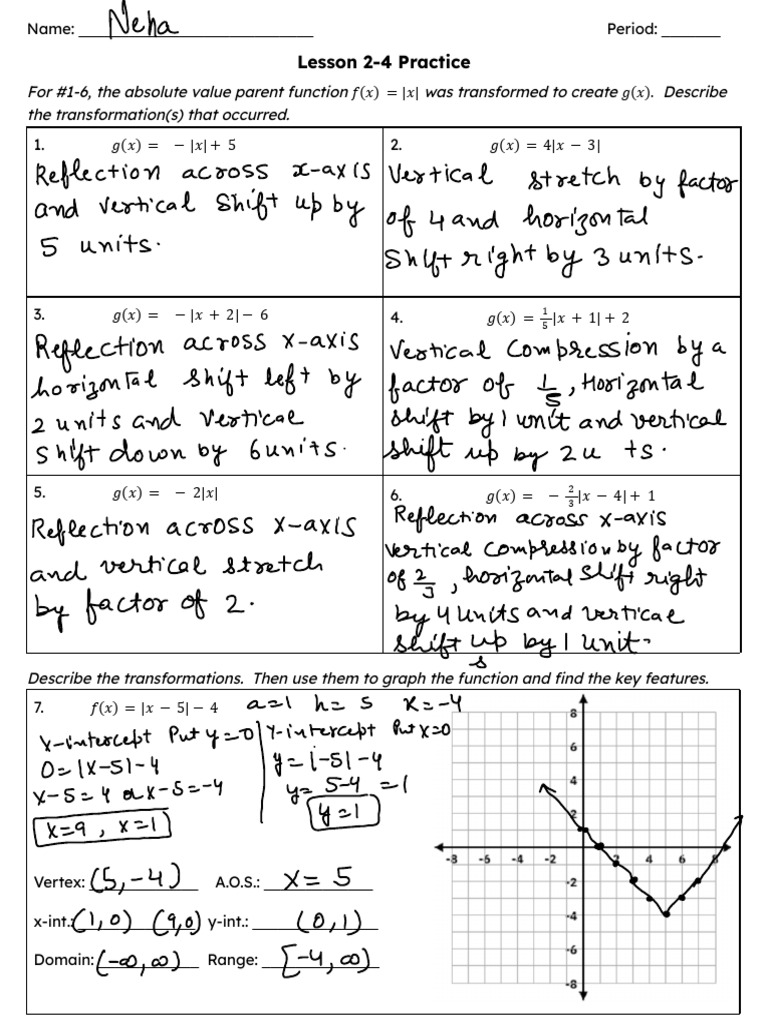 Name: Neha Period:
Lesson 2-4 Practice
For #1-6, the absolute value parent function f(x) = |x| was transformed to create g(x). Describe
the transformation(s) that occurred.
1. g(x) = − |x| + 5
Reflection across x-axis
and vertical shift up by
5 units.
2. g(x) = 4|x − 3|
Vertical stretch by factor
of 4 and horizontal
Shift right by 3 units.
3. g(x) = − |x + 2| − 6
Reflection across x-axis
horizontal shift left by
2 units and vertical
shift down by 6 units.
4. g(x) = 1/5|x + 1| + 2
Vertical compression by a
factor of 1/5, Horizontal
shift by 1 unit and vertical
shift up by 2 u ts.
5. g(x) = − 2|x|
Reflection across x-axis
and vertical stretch
by factor of 2.
6. g(x) = − 2/3|x − 4| + 1
Reflection across x-axis
vertical compression by factor
of 2/3, horizontal shift right
by 4 units and vertical
shift up by 1 unit.
s
Describe the transformations. Then use them to graph the function and find the key features.
7. f(x) = |x − 5| − 4 a=1 h= 5 K=-4
X-intercept Put y=0
0=|x-5|-4
x-5=4 or x-5=-4
x=9, x=1
Y-intercept Put x=0
y=|-5|-4
y= 5-4 =1
y=1
Vertex: (5,-4) A.O.S.: x= 5
x-int.: (1,0) (9,0) y-int.: (0,1)
Domain: (-∞,∞) Range: [-4,∞)
8
6
4
2
-8 -6 -4 -2 2 4 6 8
-2
-4
-6
-8